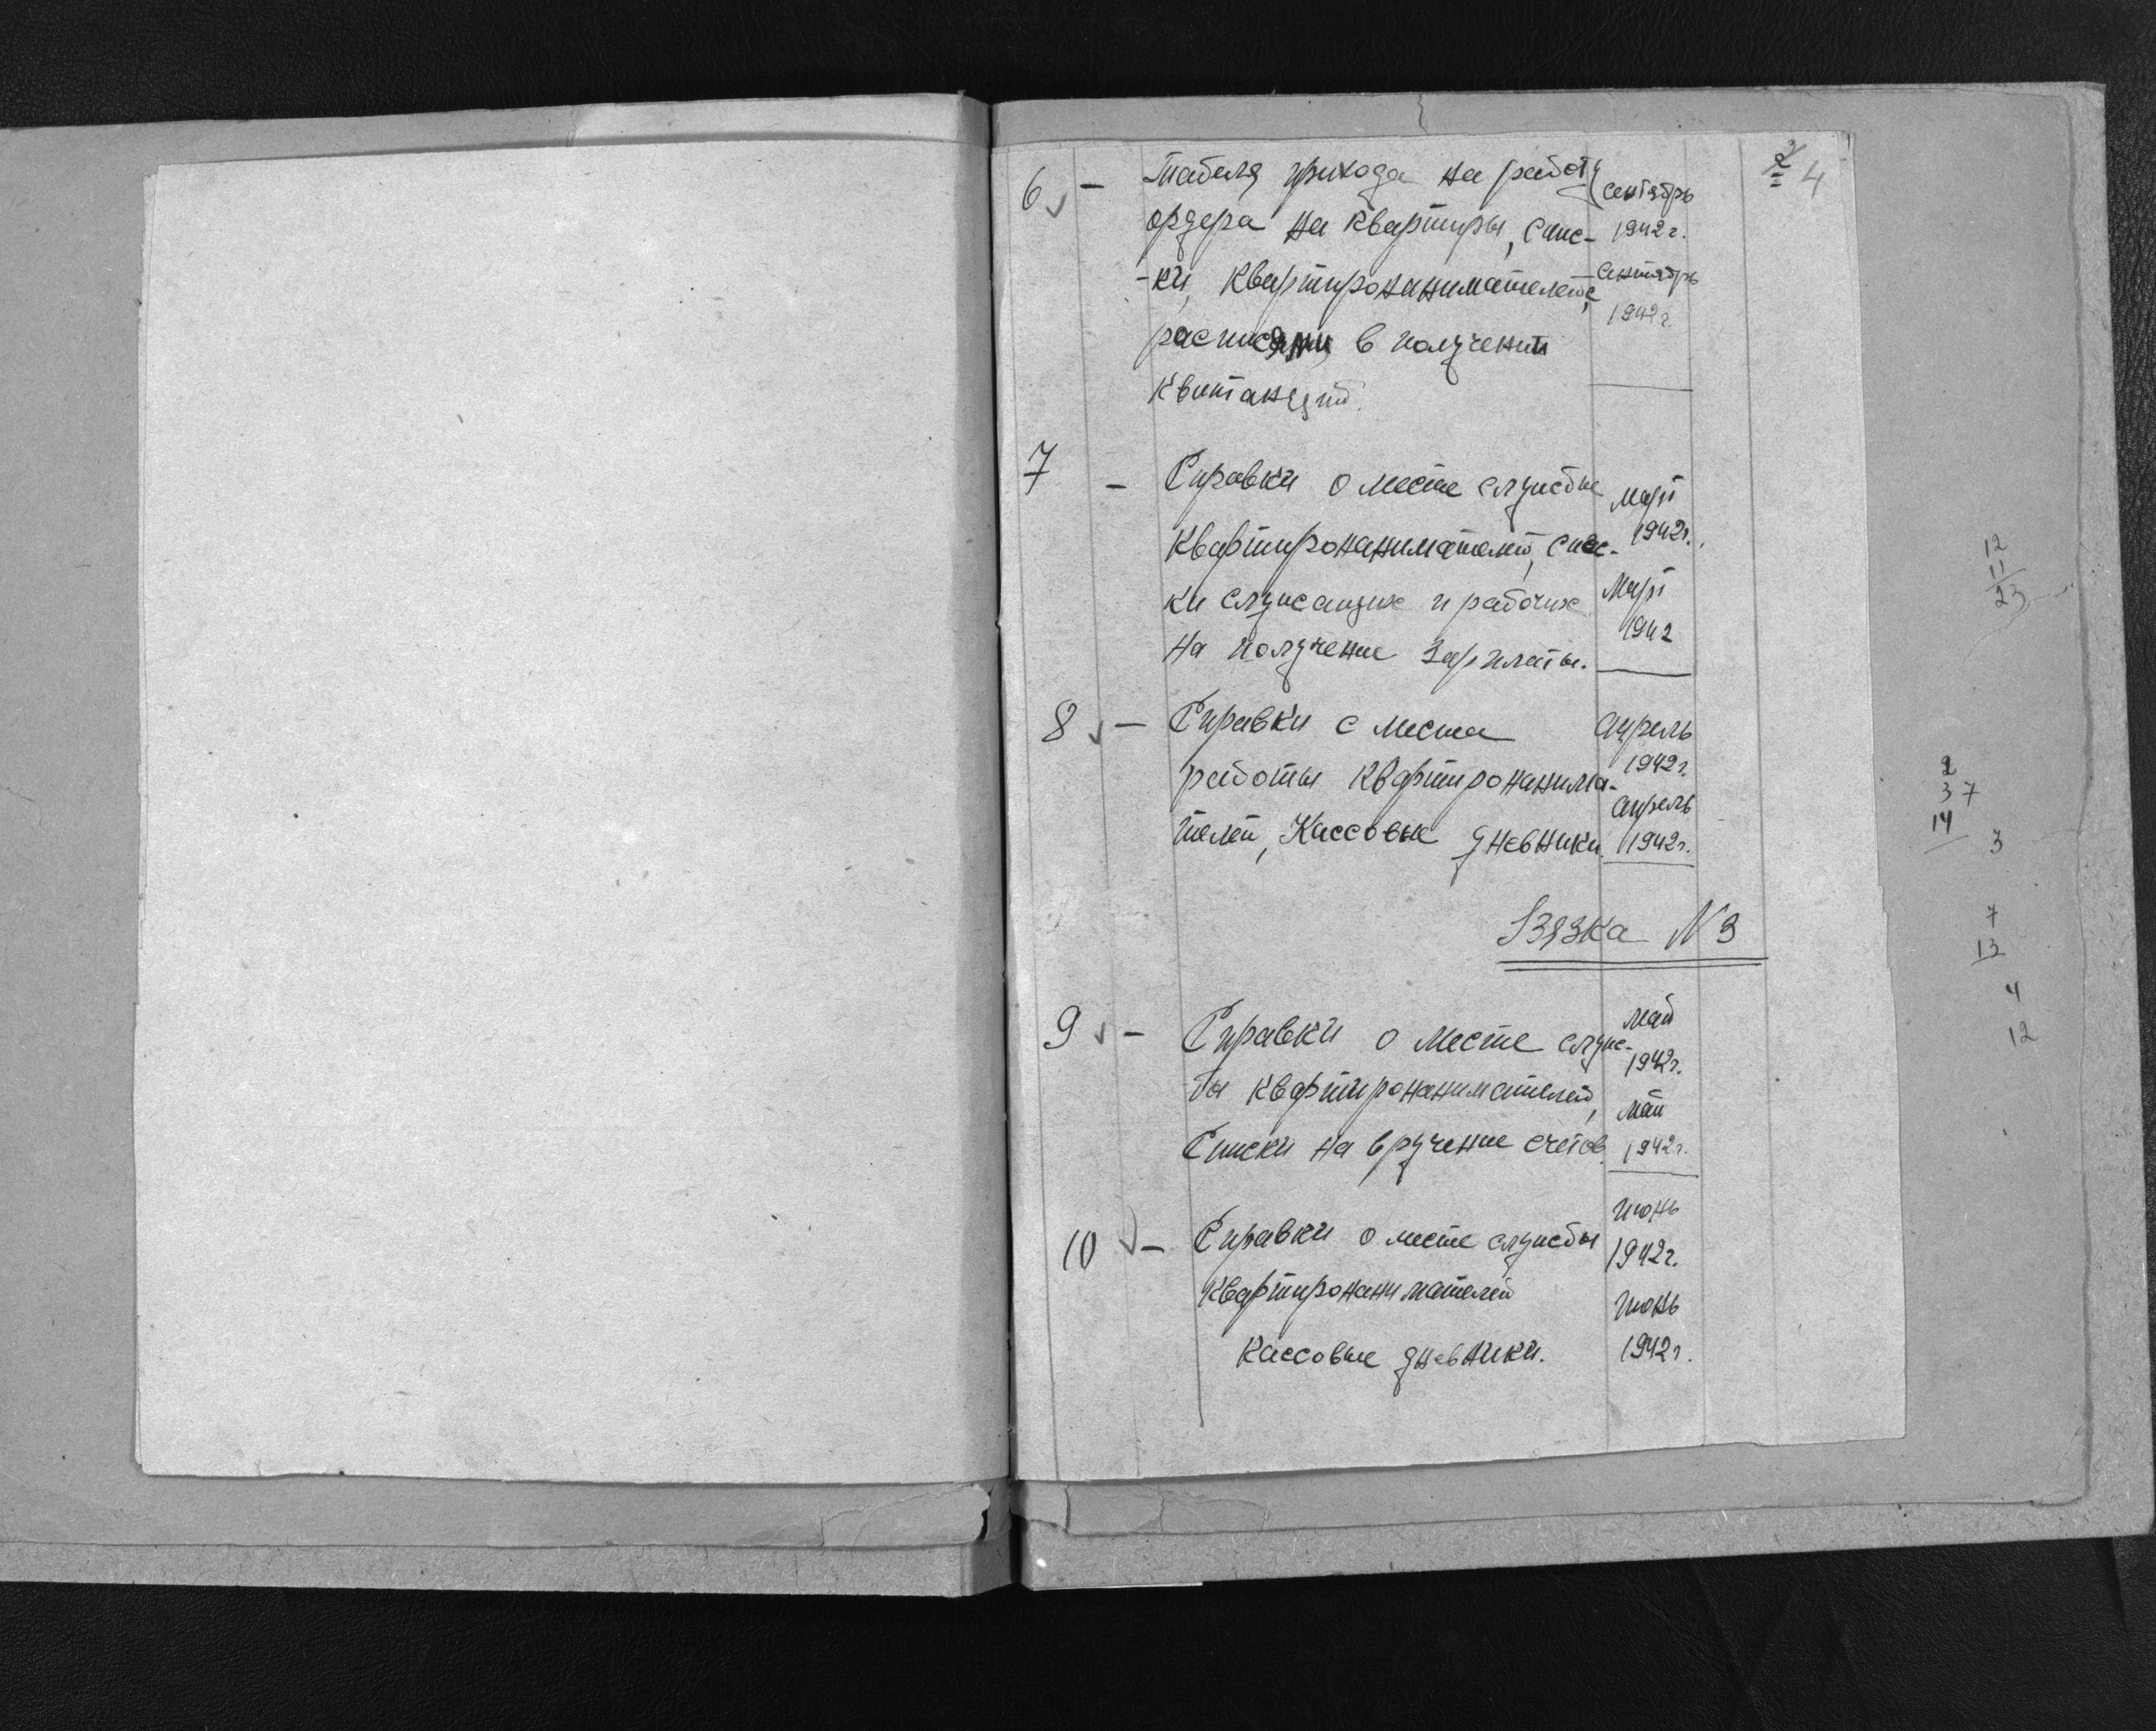 2 4
6 ✓ – Табеля прихода на работу сентябрь
ордера на квартиры, спис- 1942 г.
-ки квартиронанимателей, сентябрь
1942 г.
в получении
квитанций.
7 – Справки о месте службы март
квартиронанимателей, спис- 1942 г.
ки служащих и рабочих март
1942
на получение зарплаты.
8 ✓ – Справки с места апрель
работы квартиронанима- 1942 г.
апрель
телей, Кассовые дневники. 1942 г.
Вязка N 3
9 ✓ – Справки о месте служ- май
1942 г.
бы квартиронанимателей, май
Списки на вручение счетов. 1942 г.
июнь
10 ✓ – Справки о месте службы 1942 г.
квартиронанимателей июнь
Кассовые дневники. 1942 г.
12
11
23
2
3 7
14
3
7
13
4
12